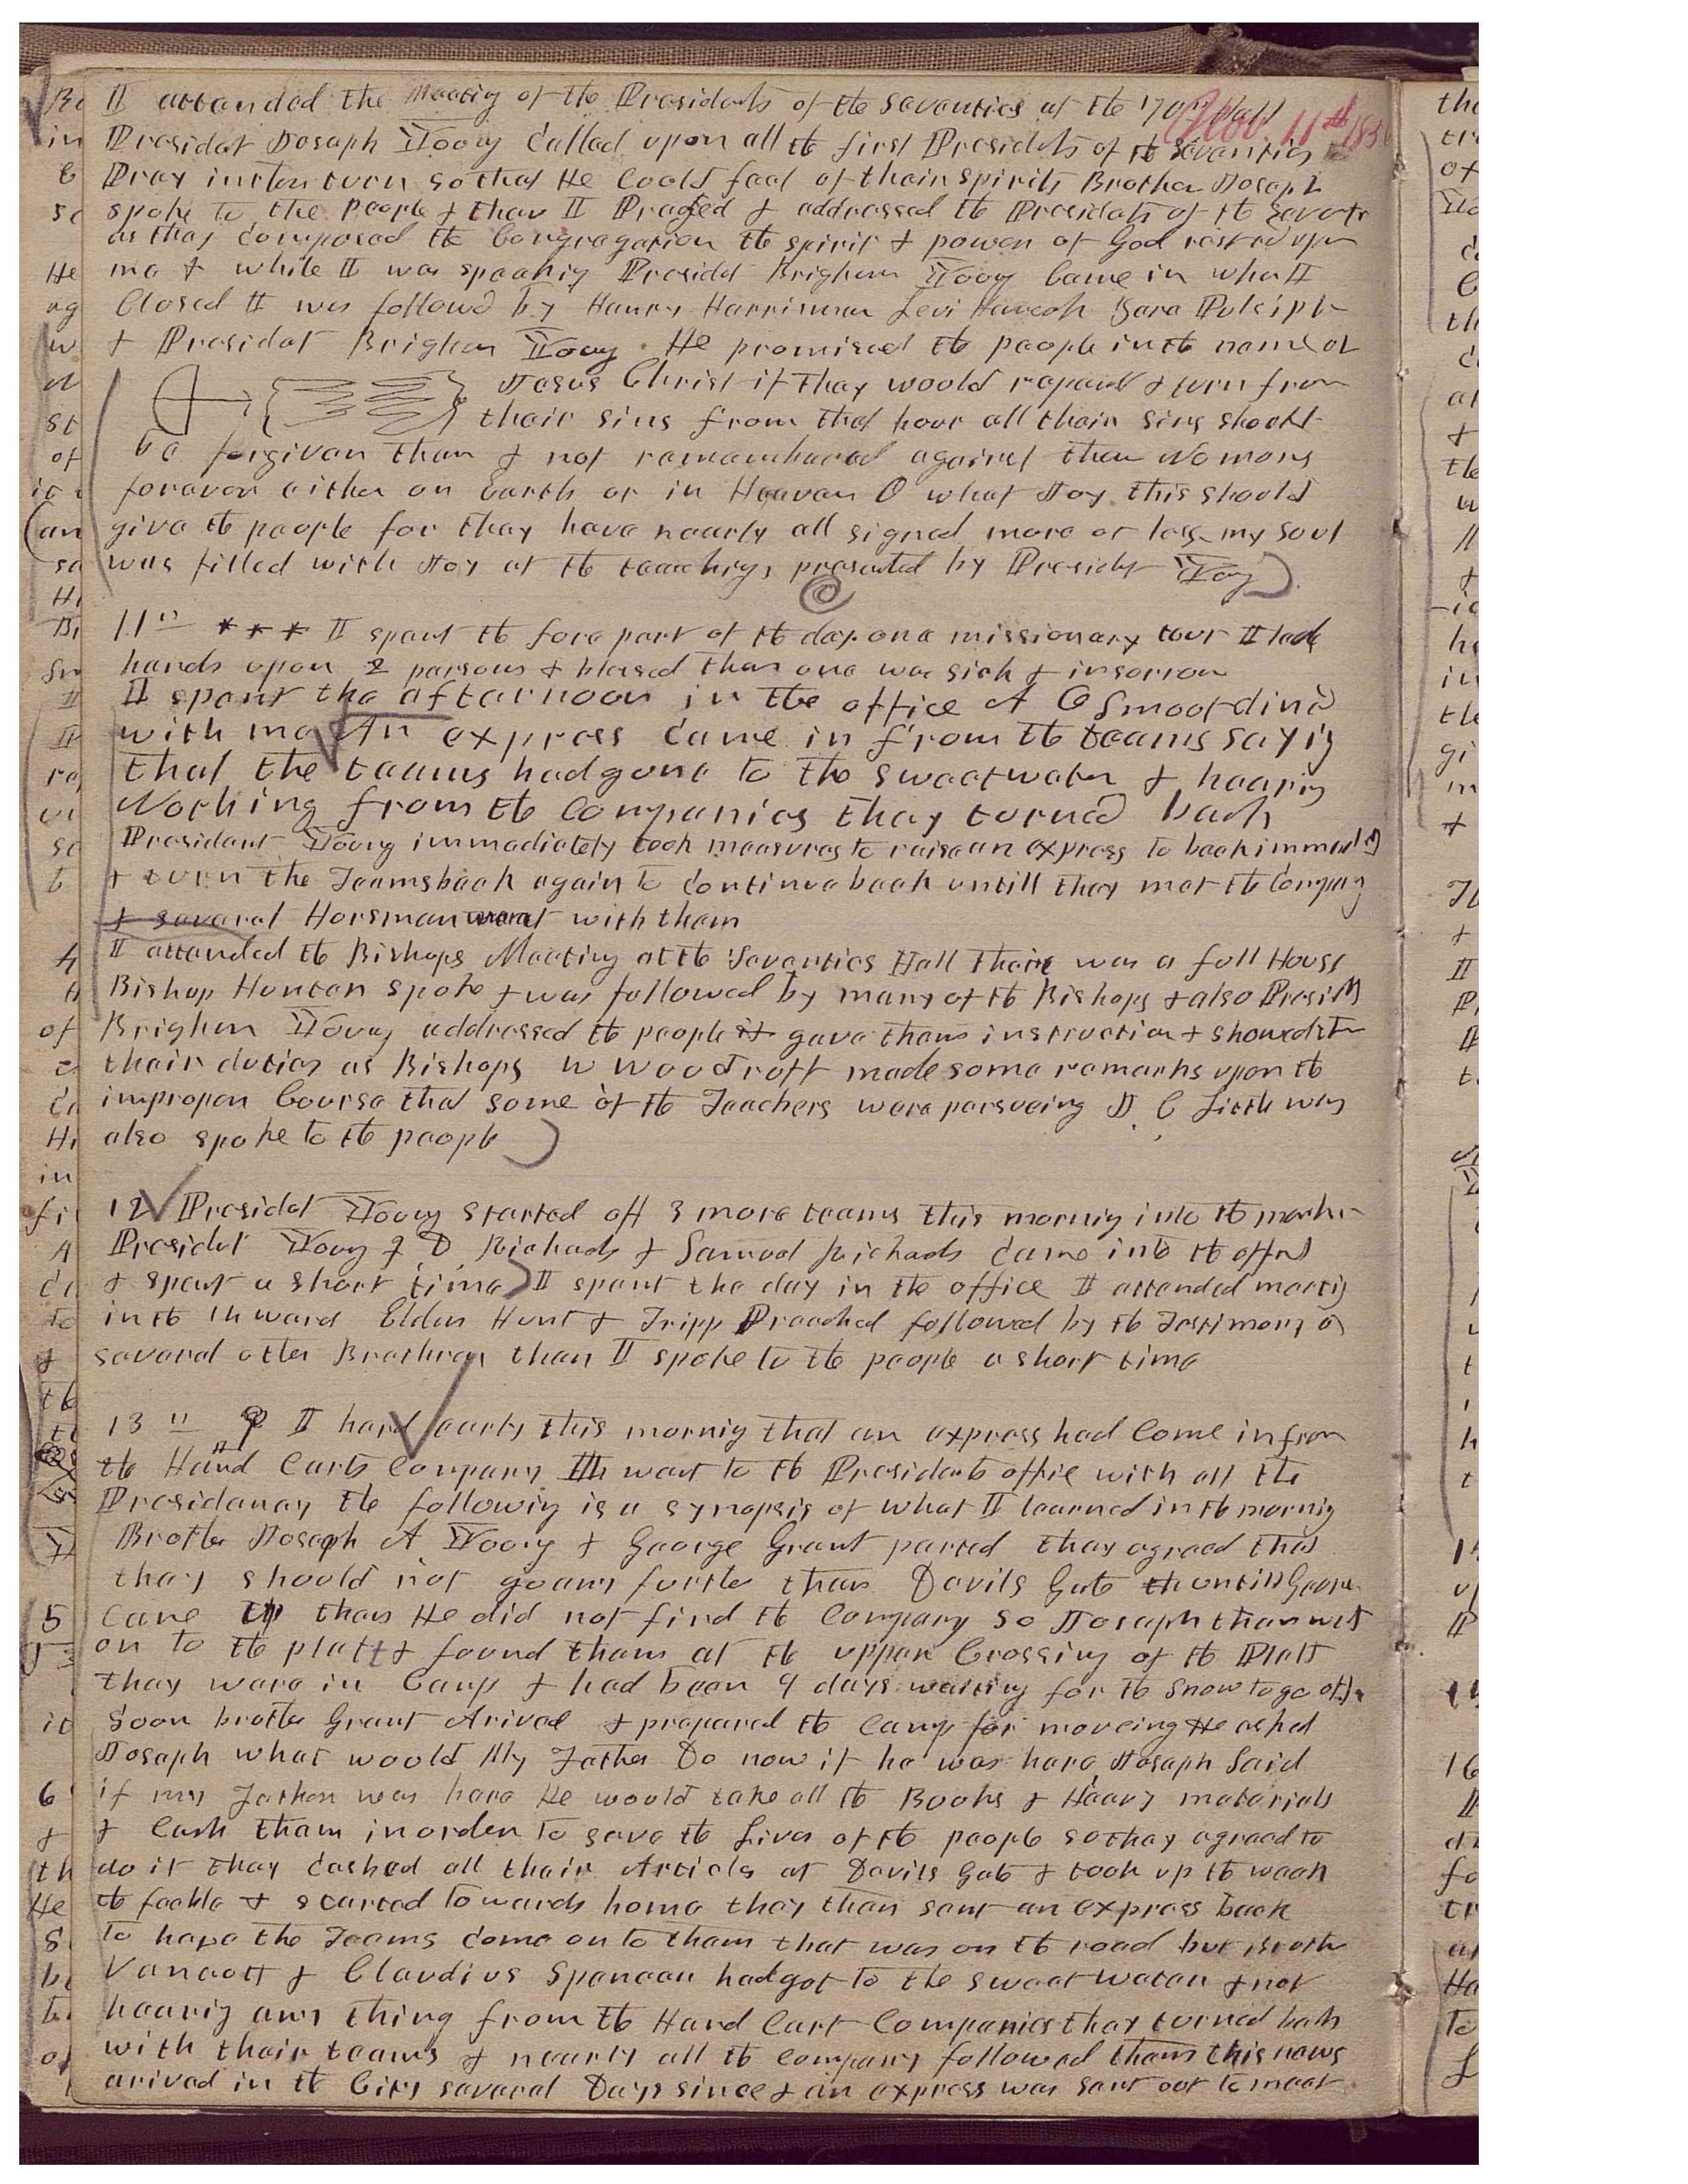 I attended the Meeting of the Presidents of the seventies at the 70s Hall
Nov. 11th 1856
President Joseph Young Called upon all the first Presidents of the seventies to
Pray in ther turn so that He Could feel of their spirits Brother Joseph
spoke to the People & then I Prayed & addressed the Presidents of the Sevets
as they Composed the Congregation the spirit & power of God rested upon
me & while I was speaking Presidet Brigham Young Came in when I
Closed I was followed by Henry Harriman Levi Hancock Zera Pulcipher
& President Brigham Young. He promised the people in the name of
Jesus Christ if they would repent & turn from
their sins from that hour all their sins should
be forgiven them & not remembered against them No more
forever either on Earth or in Heaven O what Joy this should
give the people for they have nearly all signed more or less my soul
was filled with Joy at the teachings presented by Presidet Young
11th *** I spent the fore part of the day on a missionary tour I laid
hands upon 2 persons & blessed them one was sick & in sorrow
I spent the afternoon in the office A O Smoot dined
with me An express came in from the teams sayig
that the teams had gone to the sweetwater & hearig
Nothing from the Companies they turned back
President Young immediately took measures to raise an express to back immedly
& turn the Teams back again to Continue back untill they met the Company
& several Horsman went with them
I attended the Bishops Meeting at the Seventies Hall Their was a full House
Bishop Hunter spoke & was followed by many of the Bishops & also Presidt
Brigham Young addressed the people it gave them instruction & showed them
their duties as Bishops W Woodruff made some remarks upon the
improper Course that some of the Teachers were persueing J. C. Little way
also spoke to the people
12 Presidet Young started off 3 more teams this mornig into the mountn
Presidet Young F D Richads & Samuel Richads came into the offic
& spent a short time I spent the day in the office I attended meetig
in the 14 ward Elder Hunt & Tripp Preached followed by the Testimony of
several other Brethren then I spoke to the people a short time
13th I hard early this mornig that an express had Come in from
the Hand Carts Company I went to the Presidents office with all the
Presidency the followig is a synopsis of what I learned in the mornig
Brother Joseph A Young & George Grant parted they agreed that
they should not go any further than Devils Gate untill George
came up then He did not find the Company so Joseph then went
on to the platt & found them at the upper Crossing of the Platt
they were in Camp & had been 9 days waiting for the Snow to go off
Soon brother Grant Arived & prepared the Camp for moveing He asked
Joseph what would My Father Do now if he was here, Joseph Said
if my Father was here He would take all the Books & Heavy materials
& Cash them in order to save the Lives of the people so they agreed to
do it they cashed all their Articles at Devils Gate & took up the weak
the feeble & started towards home they then sent an express back
to have the Teams come on to them that was on the road but Brother
Vancott & Claudius Spencer had got to the sweet water & not
hearig any thing from the Hand Cart Companies they turned back
with their teams & nearly all the company followed them this news
arived in the City several Days since & an express was sent out to meet